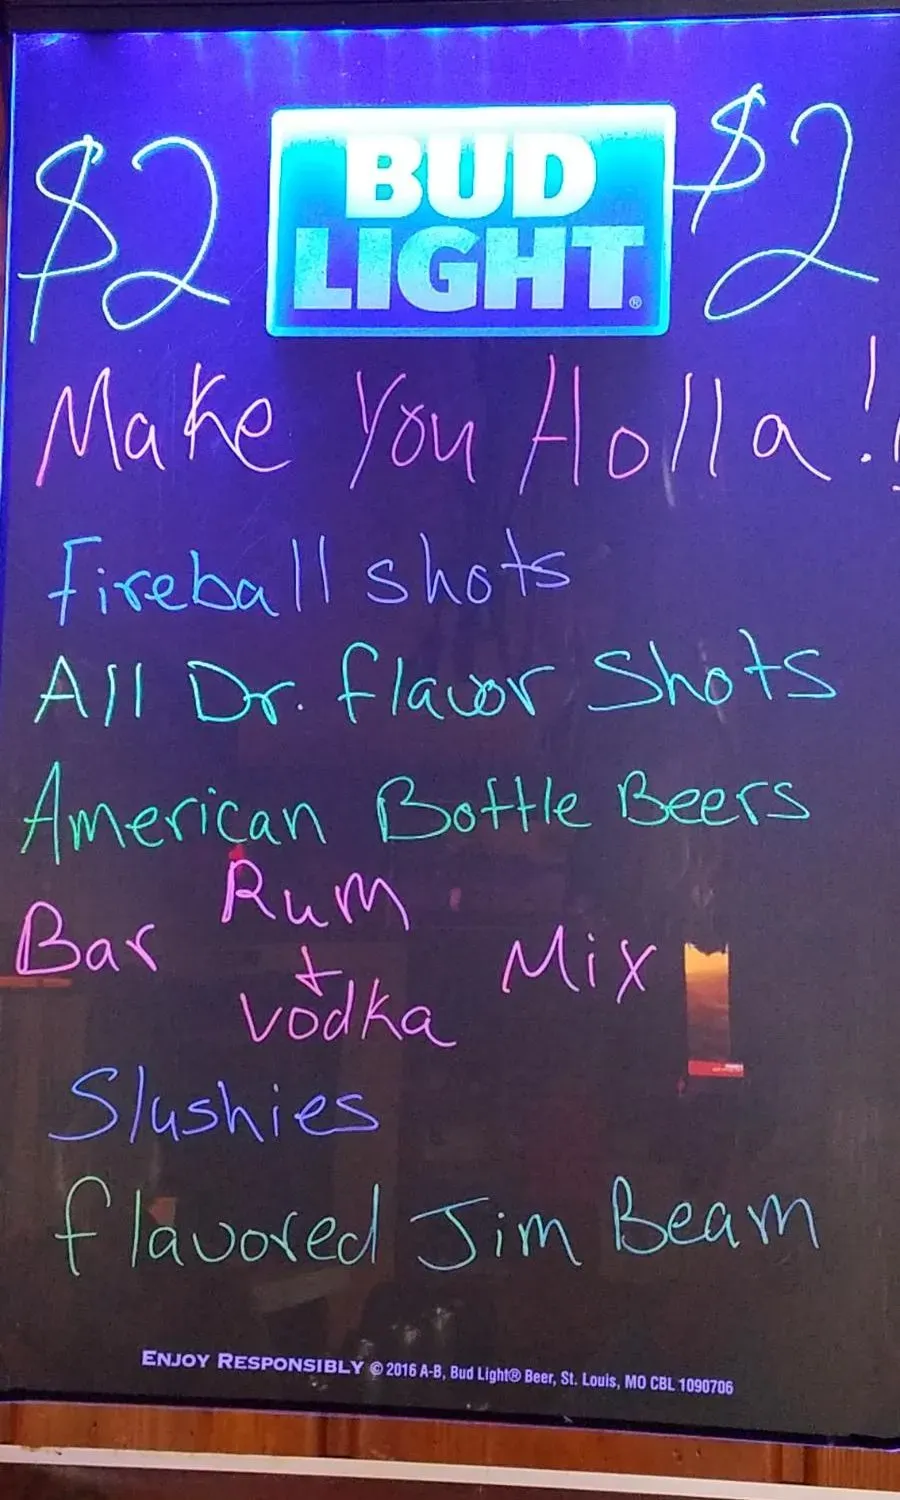 $2 BUD LIGHT® $2
Make You Holla!!
Fireball shots
All Dr. flavor Shots
American Bottle Beers
Bar Rum + Vodka Mix
Slushies
flavored Jim Beam
ENJOY RESPONSIBLY © 2016 A-B, Bud Light® Beer, St. Louis, MO CBL 1090706